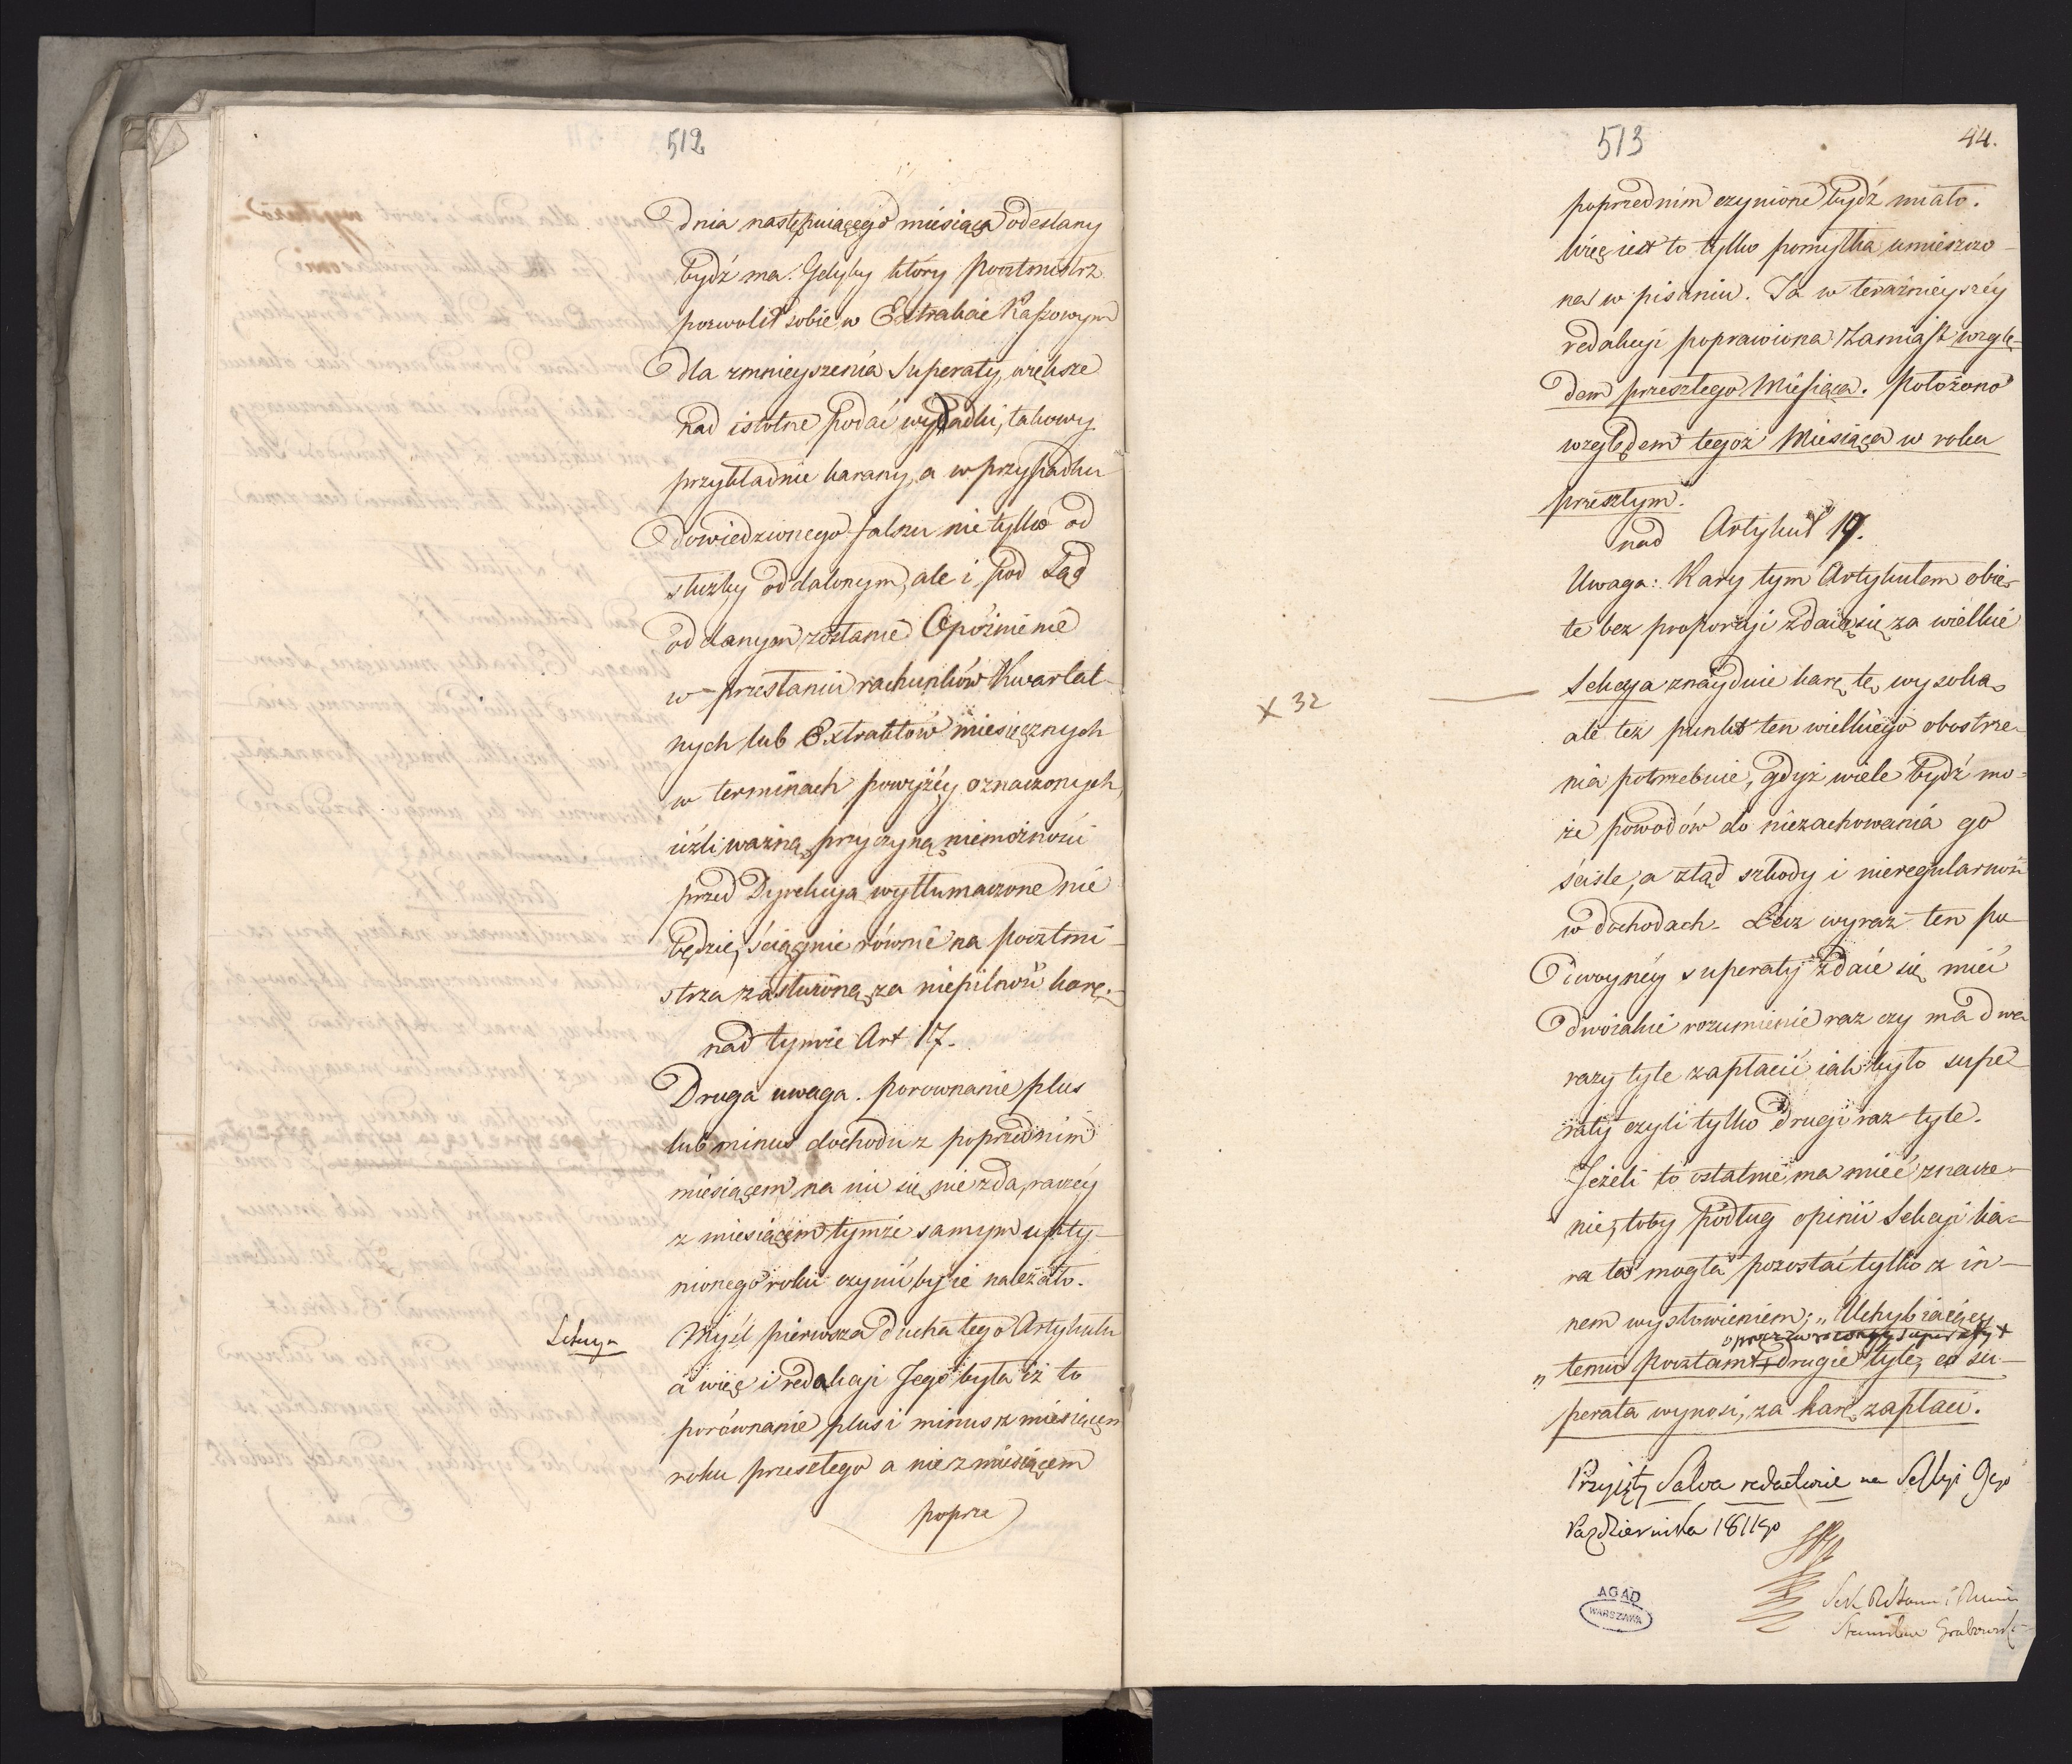 512
dnia następuiącego miesiąca odesłany
bydź ma. Gdyby który Pocztmistrz
pozwolił sobie w Extrakcie Kassowym
dla zmnieyszenia Superaty, większe
nad istotne podać wydadki, takowy
przykładnie karany, a w przypadku
dowiedzionego falszu nie tylko od
służby oddalonym, ale i pod Sąd
oddanym zostanie Opóźnienie
w przesłaniu rachunków Kwartal-
nych lub Extraktów miesięcznych
w terminach powyżéy oznaczonych,
iéźli ważną przyczyną niemożności
przed Dyrekcyą wytłumaczone nie
będzie, ściągnie równie na pocztmi-
strza zasłużoną za niepilność karę.
nad tymże Art 17.
Druga uwaga. porownanie plus
lub minus dochodu z poprzednim
miesiącem na nic się nie zda, raczéy
z miesiącem tymże samym upły-
nionego roku czynić by ie należało.
Sekcya Myśl pierwsza Ducha tego Artykułu
a więc i redakcji Jego była iż to
porównanie plus i minus z miesiącem
roku przeszłego a nie z miesiącem
poprze
513
44.
poprzednim czynione bydź miało.
Więc iest to tylko pomyłka umieszczo-
na w pisaniu. Ta w teraźnieyszéy
redakcji poprawiona Zamiast wzglę-
dem przeszłego Miesiąca. położono
względem tegoż Miesiąca w roku
przeszłym.
nad Artykuł 19.
Uwaga: Kary tym Artykułem obię-
te bez proporcji zdaią się za wielkie
Sekcya znayduie karę tę wysoką
X 32
ale też punkt ten wielkiego obostrze-
nia potrzebuie, gdyż wiele bydź mo-
że powodów do niezachowania go
ściśle, a ztąd szkody i nieregularność
w dochodach. Lecz wyraz ten po-
dwoynéy superaty zdaie się mieć
dwoiakie rozumienie raz czy ma dwa
razy tyle zapłacić iak było supe
raty czyli tylko drugi raz tyle.
Jeżeli to ostatnie ma mieć znacze-
nie, toby podług opinii Sekcji ka-
ra ta mogła pozostać tylko z in-
nem wysłowieniem; „Uchybiaiący
oprócz zwrócenéy superaty +
„temu Pocztamt, drugie tyle, co su-
perata wynosi, za karę zapłaci.
Przyięty Salva redactione na Sessyi 9go
Października 1811go
Stanisław Grabowski
AGAD
WARSZAWA